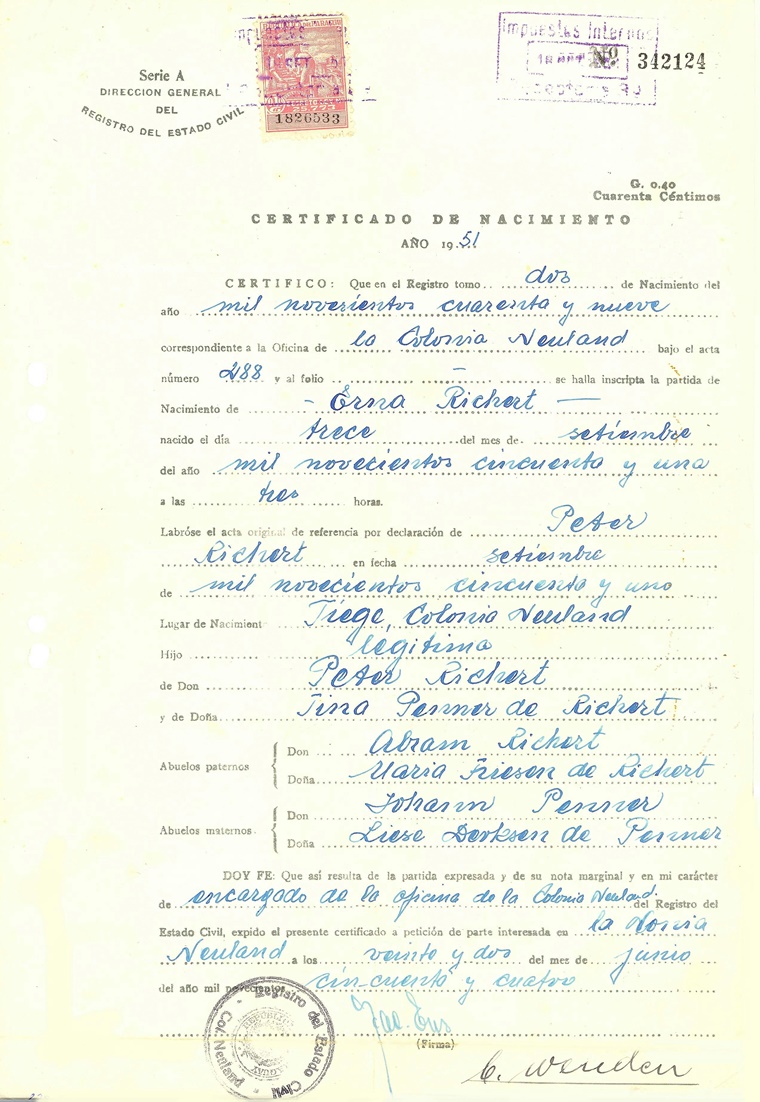 Serie A
DIRECCION GENERAL
DEL
REGISTRO DEL ESTADO CIVIL
1826533
Impuestos Internos
18 SET
Nº 342124
G. 0.40
Cuarenta Céntimos
CERTIFICADO DE NACIMIENTO
AÑO 19 51
CERTIFICO: Que en el Registro tomo dos de Nacimiento del
año mil novecientos cuarenta y nueve
correspondiente a la Oficina de la Colonia Neuland bajo el acta
número 288 y al folio - se halla inscripta la partida de
Nacimiento de - Erna Richert -
nacido el día trece del mes de setiembre
del año mil novecientos cincuenta y una
a las tres horas.
Labróse el acta original de referencia por declaración de Peter
Richert en fecha setiembre
de mil novecientos cincuenta y uno
Lugar de Nacimient Tiege, Colonia Neuland
Hijo legitima
de Don Peter Richert
y de Doña Tina Penner de Richert
Abuelos paternos { Don Abram Richert
Doña Maria Friesen de Richert
Abuelos maternos { Don Johann Penner
Doña Liese Derksen de Penner
DOY FE: Que así resulta de la partida expresada y de su nota marginal y en mi carácter
de encargado de la oficina de la Colonia Neuland. del Registro del
Estado Civil, expido el presente certificado a petición de parte interesada en la
Neuland a los veinto y dos del mes de junio
del año mil novecientos cincuenta y cuatro
(Firma)
Registro del Estado Civil
Col. Neuland